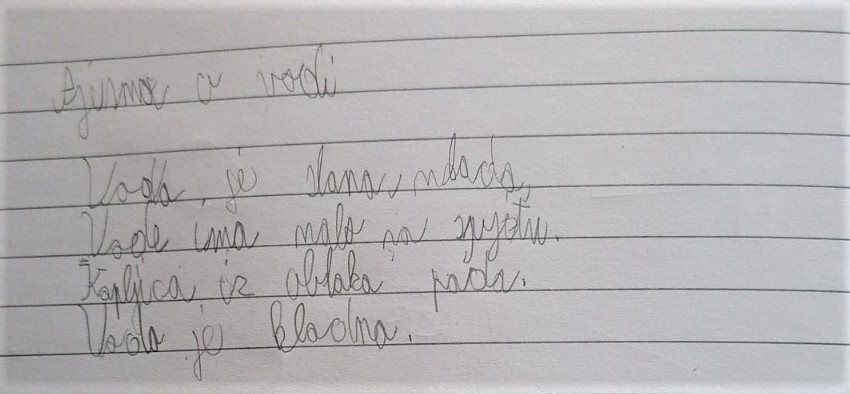 Pjesma o vodi
Voda je slana, mlada,
Vode ima malo na svijetu.
Kapljica iz oblaka pada.
Voda je hladna.